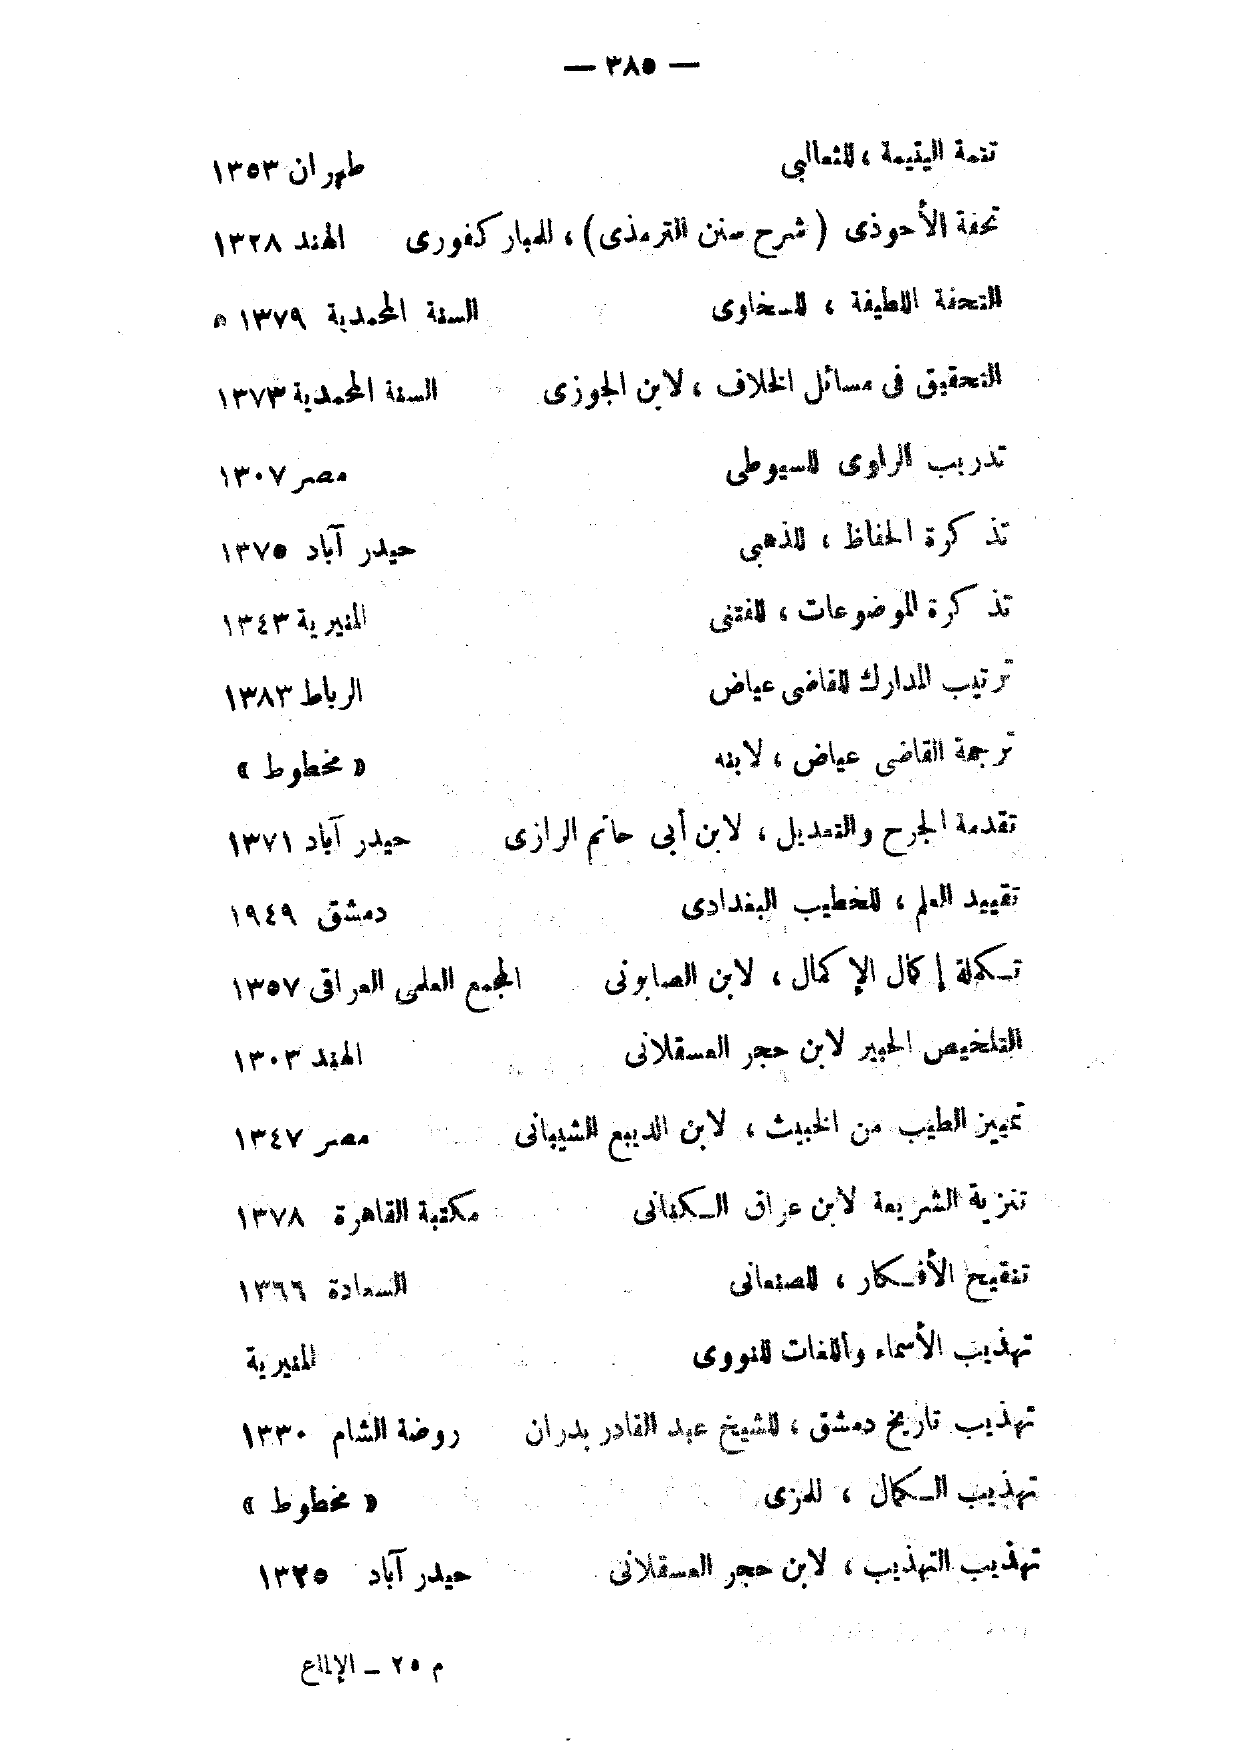 — ٣٨٥ —
تتمة اليتيمة ، للثعالبى طهران ١٣٥٣
تحفة الأحوذى ( شرح سنن الترمذى ) ، للمباركفورى الهند ١٣٢٨
التحفة اللطيفة ، للسخاوى السنة المحمدية ١٣٧٩ ه
التحقيق فى مسائل الخلاف ، لابن الجوزى السنة المحمدية ١٣٧٣
تدريب الراوى للسيوطى مصر ١٣٠٧
تذكرة الحفاظ ، للذهبى حيدر آباد ١٣٧٥
تذكرة الموضوعات ، للفتنى المنيرية ١٣٤٣
ترتيب المدارك للقاضى عياض الرباط ١٣٨٣
ترجمة القاضى عياض ، لابنه « مخطوط »
تقدمة الجرح والتعديل ، لابن أبى حاتم الرازى حيدر آباد ١٣٧١
تقييد العلم ، للخطيب البغدادى دمشق ١٩٤٩
تكملة إكمال الإكمال ، لابن الصابونى المجمع العلمى العراقى ١٣٥٧
التلخيص الحبير لابن حجر العسقلانى الهند ١٣٠٣
تمييز الطيب من الخبيث ، لابن الديبع الشيبانى مصر ١٣٤٧
تنزية الشريعة لابن عراق الكنانى مكتبة القاهرة ١٣٧٨
تنقيح الأفكار ، للصنعانى السعادة ١٣٦٦
تهذيب الأسماء واللغات للنووى المنيرية
تهذيب تاريخ دمشق ، للشيخ عبد القادر بدران روضة الشام ١٣٣٠
تهذيب الكمال ، للمزى « مخطوط »
تهذيب التهذيب ، لابن حجر العسقلانى حيدر آباد ١٣٢٥
م ٢٥ – الإلماع